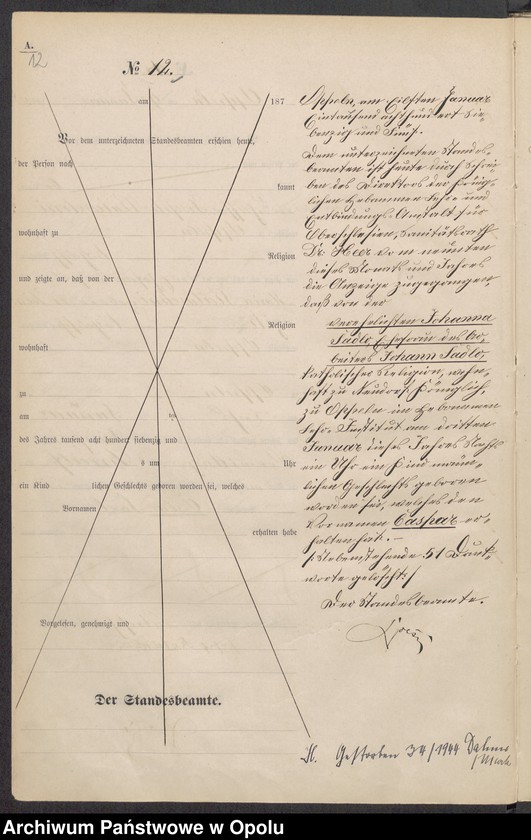 A.
12
№ 12.
am 187
Vor dem unterzeichneten Standesbeamten erschien heute,
der Person nach
kannt
wohnhaft zu
Religion
und zeigte an, daß von der
Religion
wohnhaft
zu
am
des Jahres tausend acht hundert siebenzig und
s um Uhr
ein Kind lichen Geschlechts geboren worden sei, welches
Vornamen
erhalten habe
Vorgelesen, genehmigt und
Der Standesbeamte.
Oppeln, am Eilften Januar
Eintausend acht hundert Sie-
benzig und Fünf.
Dem unterzeichneten Standes-
beamten ist heute durch Schrei-
ben des Direktors der König-
lichen Hebammen Lehr- und
Entbindungs-Anstalt für
Oberschlesien, Sanitätsrath
Dr. Heer vom neunten
dieses Monats und Jahres
die Anzeige zugegangen,
daß von der
verehelichten Johanna
Sadlo, Ehefrau des Ar-
beiters Johann Sadlo
katholischer Religion, wohn-
haft zu Neudorf, Königlich,
zu Oppeln im Hebammen
Lehr-Institut am dritten
Januar dieses Jahres Nachts
ein Uhr ein Kind männ-
lichen Geschlechts geboren
worden sei, welches den
Vornamen Caspar er-
halten hat. —
/: Nebenstehende 51 Druck-
worte gelöscht :/
Der Standesbeamte.
Gestorben 34/1944
Archiwum Państwowe w Opolu